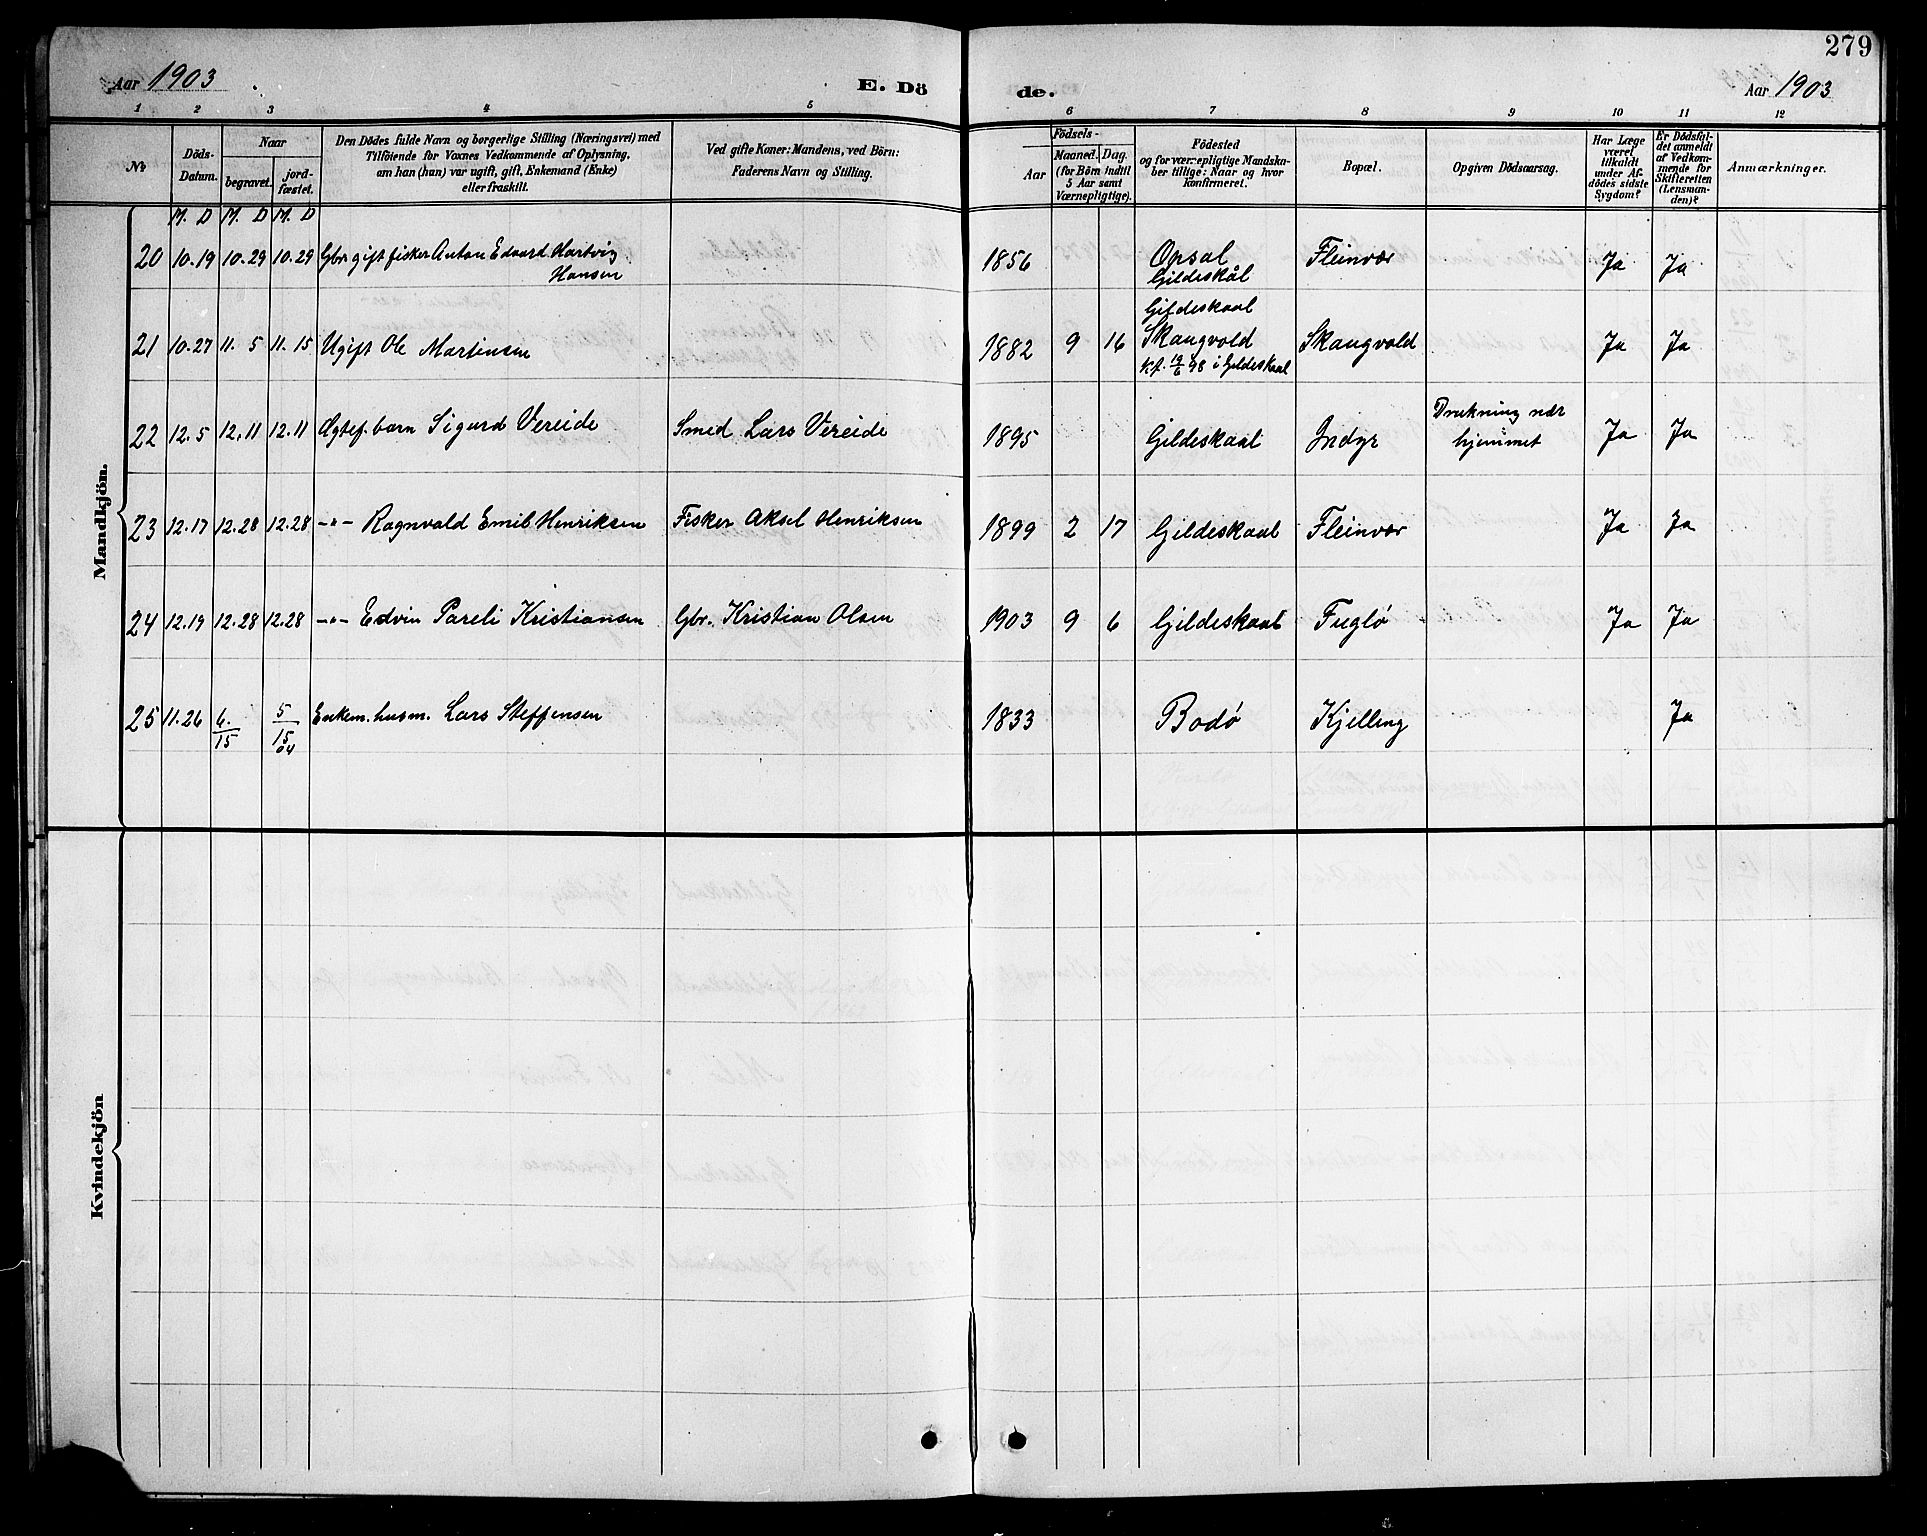 279
Aar 1903
E. Dö
de.
Aar 1903
1 2 3 4 5 6 7 8 9 10 11 12
№
Döds-Datum.
Naar
begravet.
jord-fæstet.
Den Dödes fulde Navn og borgerlige Stilling (Næringsvei) med
Tilföiende for Voxnes Vedkommende af Oplysning,
om han (hun) var ugift, gift, Enkemand (Enke)
eller fraskilt.
Ved gifte Koner: Mandens, ved Börn:
Faderens Navn og Stilling.
Födsels-
Aar
Maaned. Dag.
(for Börn indtil
5 Aar samt
Værnepligtige).
Födested
og for værnepligtige Mandska-
ber tillige: Naar og hvor
konfirmeret.
Bopæl.
Opgiven Dödsaarsag.
Har Læge
været
tilkaldt
under Af-
dödes sidste
Sygdom?
Er Dödsfal-
det anmeldt
af Vedkom-
mende for
Skifteretten
(Lensman-
den)?
Anmærkninger.
M. D M. D M. D
Mandkjön.
20 10.19 10.29 10.29 Gbr gift fisker Anton Edvard Hartvig
Hansen
1856 Opsal
Gildeskål Fleinvær Ja Ja
21 10.27 11. 5 11. 15 Ugift Ole Martinsen
1882 9 16 Gildeskaal
Skaugvold
kf. 19/6 98 i Gildeskaal Skaugvold Ja Ja
22 12.5 12.11 12.11 Ægtef. barn Sigurd Vereide Smed Lars Vereide
1895 Gildeskaal Indyr Drukning nær
hjemmet Ja Ja
23 12.17 12.28 12.28 -"- Ragnvald Emil Henriksen Fisker Aksel Henriksen
1899 2 17 Gildeskaal Fleinvær Ja Ja
24 12.19 12.28 12.28 -"- Edvin Pareli Kristiansen Gbr. Kristian Olsen
1903 9 6 Gildeskaal Fuglø Ja Ja
25 11.26 6./15 5/15 04 Enkem. husm. Lars Steffensen
1833 Bodø Kjelling Ja
Kvindekjön